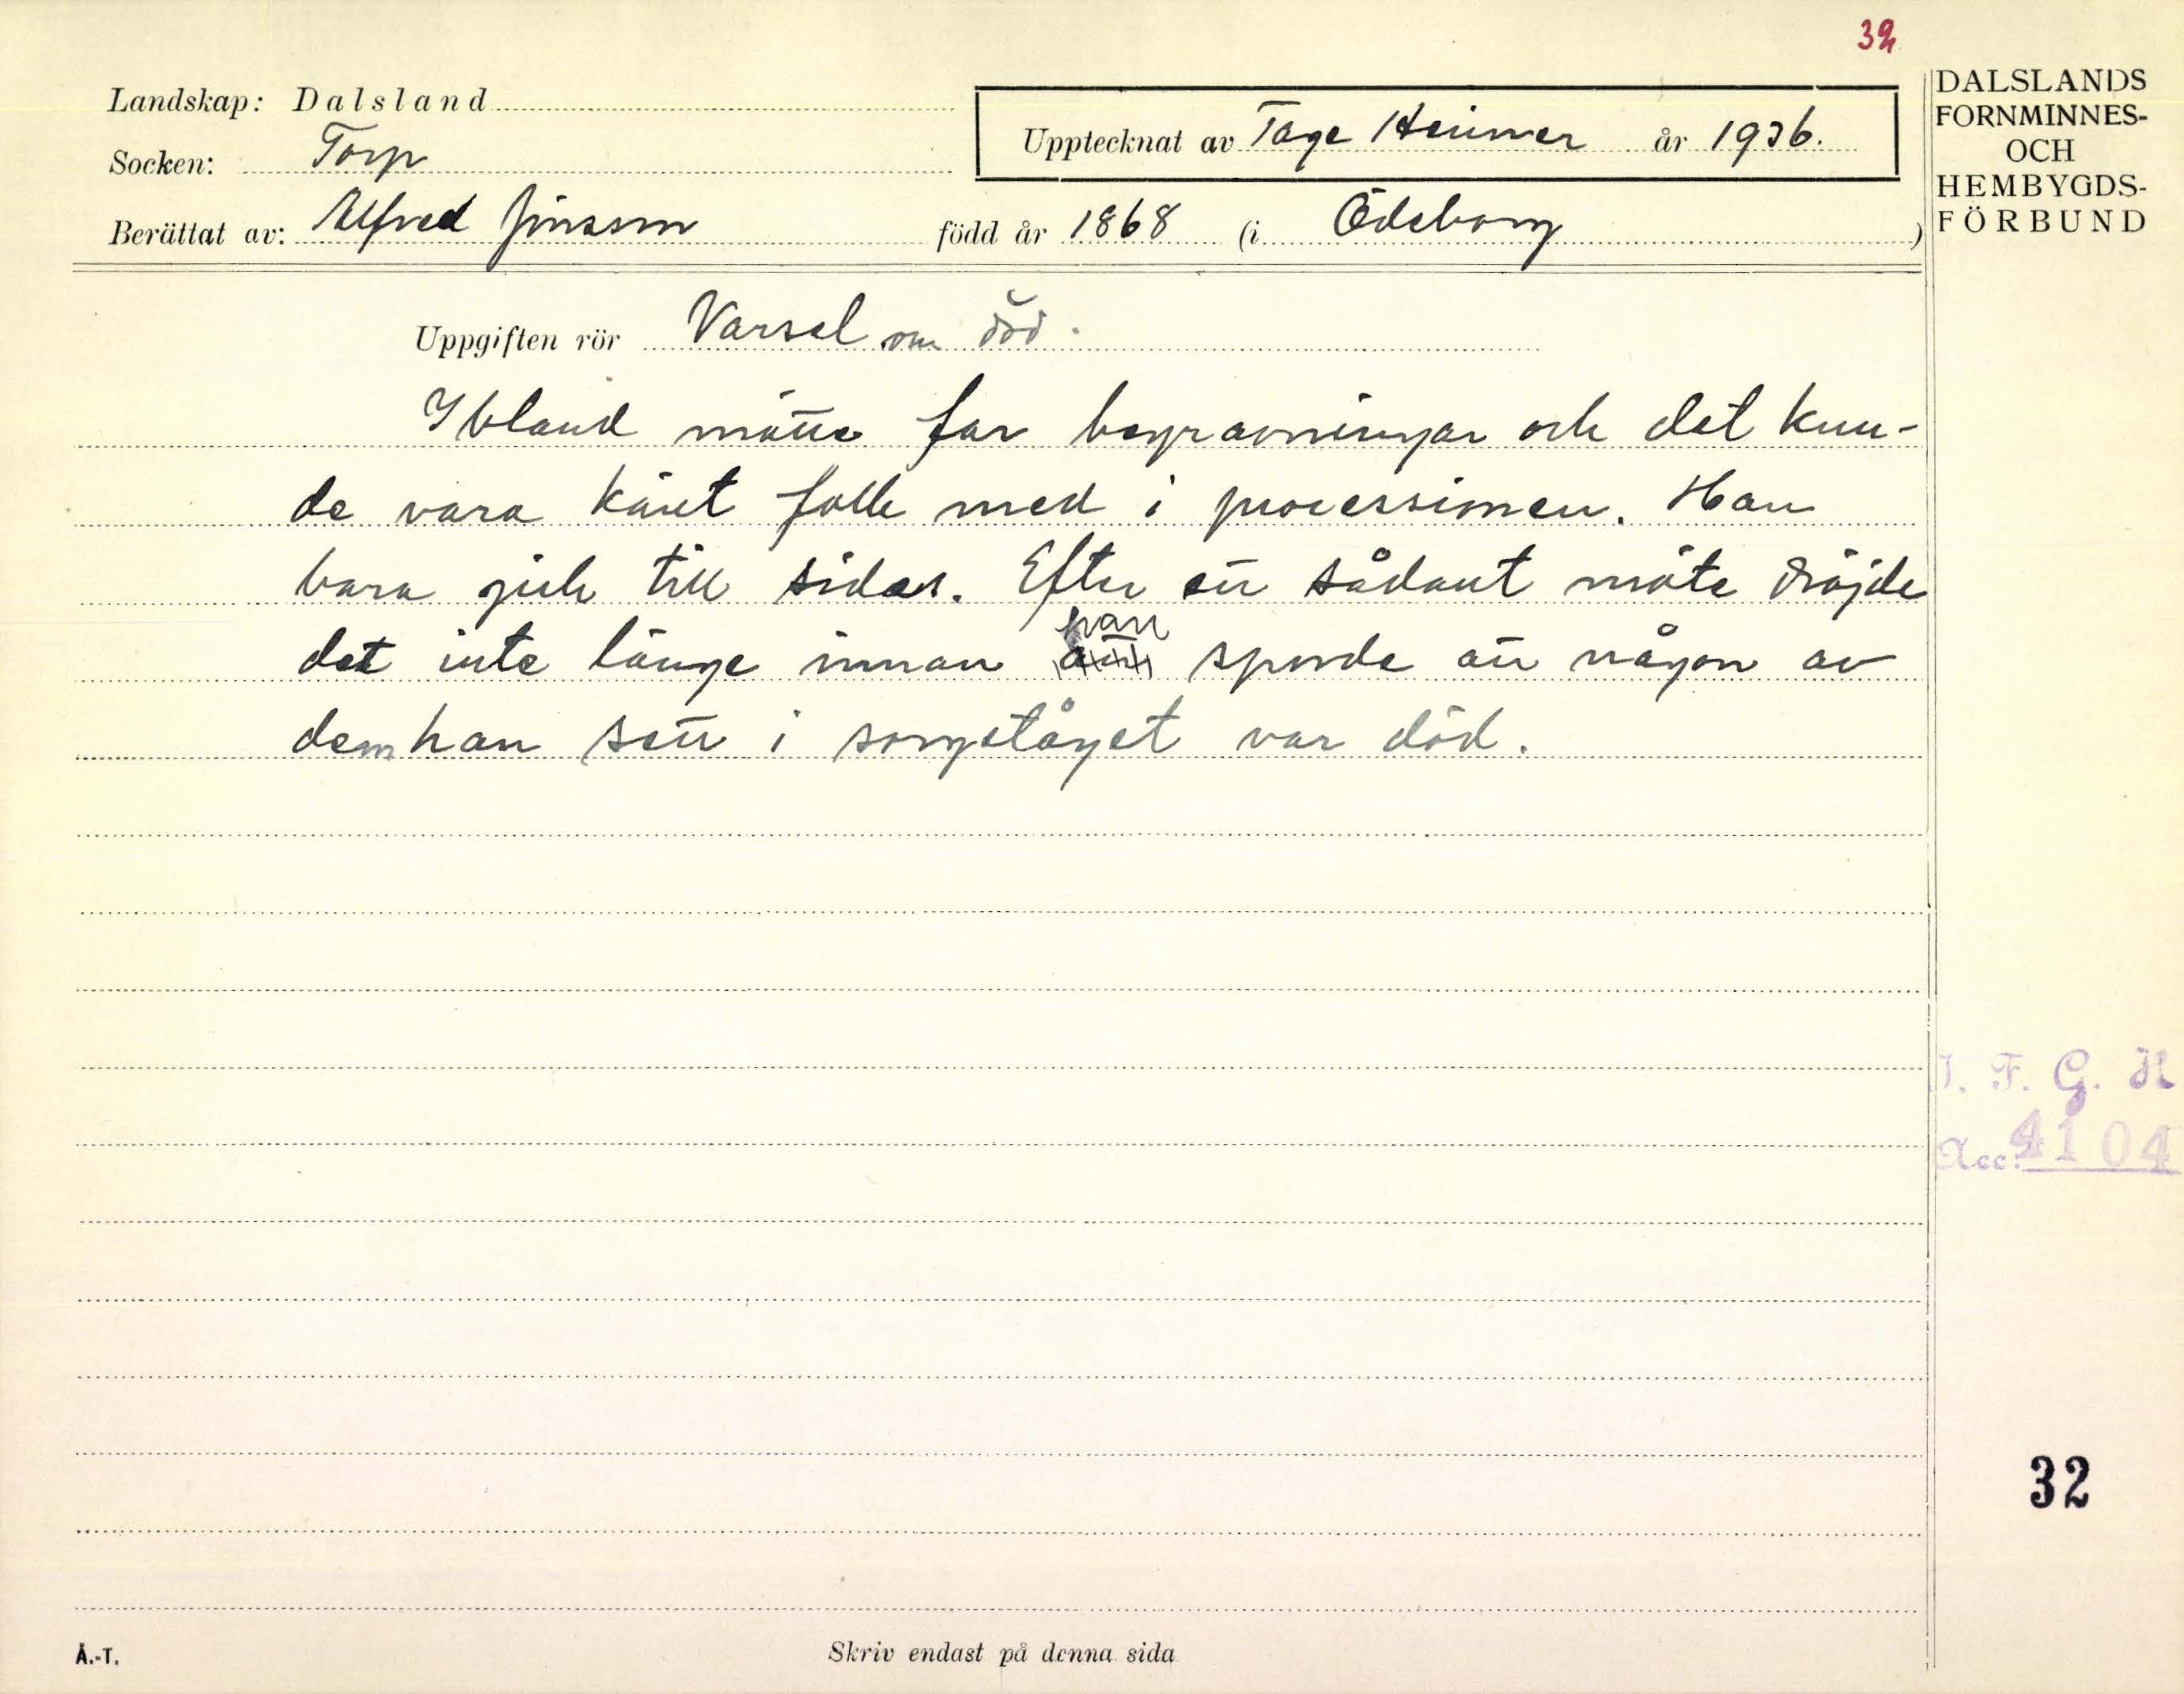 32
Landskap: Dalsland
Socken: Torp
Upptecknat av Tage Heimer år 1936.
Berättat av: Alfred Jonsson född år 1868 (i Ödeborg)
DALSLANDS
FORNMINNES-
OCH
HEMBYGDS-
FÖRBUND
Uppgiften rör Varsel om död.
Ibland mötte far begravningar och det kun-
de vara känt folk med i processionen. Han
bara gick till sidan. Efter ett sådant möte dröjde
det inte länge innan han sporde att någon av
dem han sett i sorgetåget var död.
I. F. G. H
Acc. 4104
32
Å.-T.
Skriv endast på denna sida